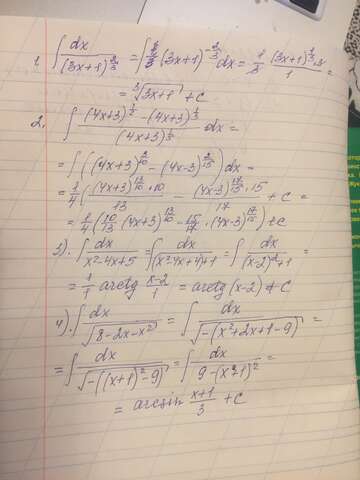 1. ∫ dx/(3x+1)^(2/3) = ∫ (3x+1)^(-2/3) dx = 1/3 (3x+1)^(1/3)·3/1 =
= ∛(3x+1) + C
2. ∫ ((4x+3)^(1/2) - (4x+3)^(1/3))/(4x+3)^(1/5) dx =
= ∫((4x+3)^(3/10) - (4x-3)^(2/15))dx =
= 1/4 ((4x+3)^(13/10)·10/13 - (4x-3)^(17/15)·15/17 + C =
= 1/4 (10/13 (4x+3)^(13/10) - 15/17·(4x-3)^(17/15)) + C
3). ∫ dx/(x²-4x+5) = ∫ dx/((x²-4x+4)+1) = ∫ dx/((x-2)²+1) =
= 1/1 arctg (x-2)/1 = arctg (x-2) + C
4). ∫ dx/√(8-2x-x²) = ∫ dx/√(-(x²+2x+1-9)) =
= ∫ dx/√(-((x+1)²-9)) = ∫ dx/(9-(x+1)²) =
= arcsin (x+1)/3 + C